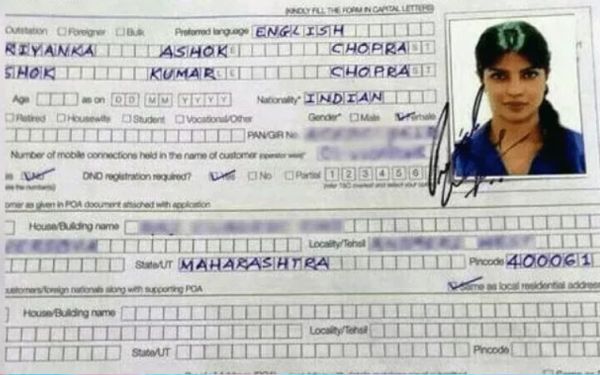 KINDLY FILL THE FORM IN CAPITAL LETTERS
Outstation Foreigner Bulk Preferred language ENGLISH
RIYANKA ASHOK CHOPRA
SHOK KUMAR CHOPRA
Age as on D D M M Y Y Y Y Nationality* INDIAN
Retired Housewife Student Vocational/Other Gender* Male Female
PAN/GIR No.
Number of mobile connections held in the name of customer operator wise*
DND registration required? Yes No Partial 1 2 3 4 5 6
omer as given in POA document attached with application
House/Building name
Locality/Tehsil
State/UT MAHARASHTRA Pincode 400061
ustomers/foreign nationals along with supporting POA Same as local residential address
House/Building name
Locality/Tehsil
State/UT Pincode